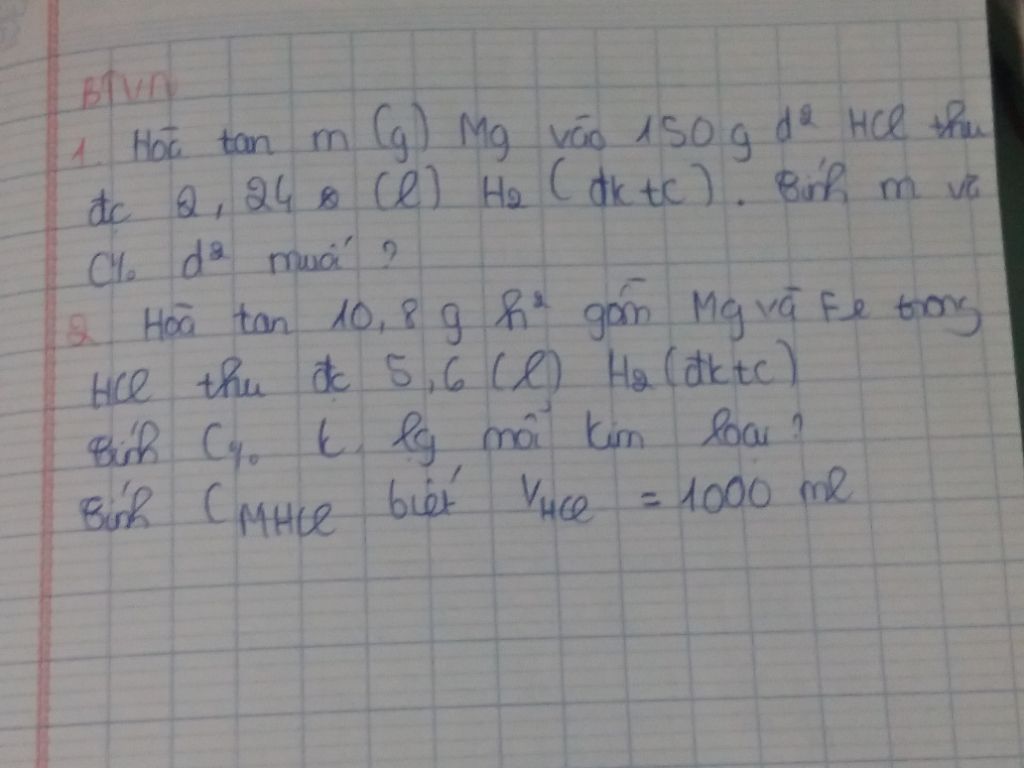 BTVN
1. Hòa tan m (g) Mg vào 150 g d² HCl thu
đc 2,24 (l) H₂ (đktc). Tính m và
C% d² muối ?
2 Hòa tan 10,8 g h² gồm Mg và Fe trong
HCl thu đc 5,6 (l) H₂ (đktc)
Tính C% k lg mỗi kim loại ?
Tính CMHCl biết VHCl = 1000 ml